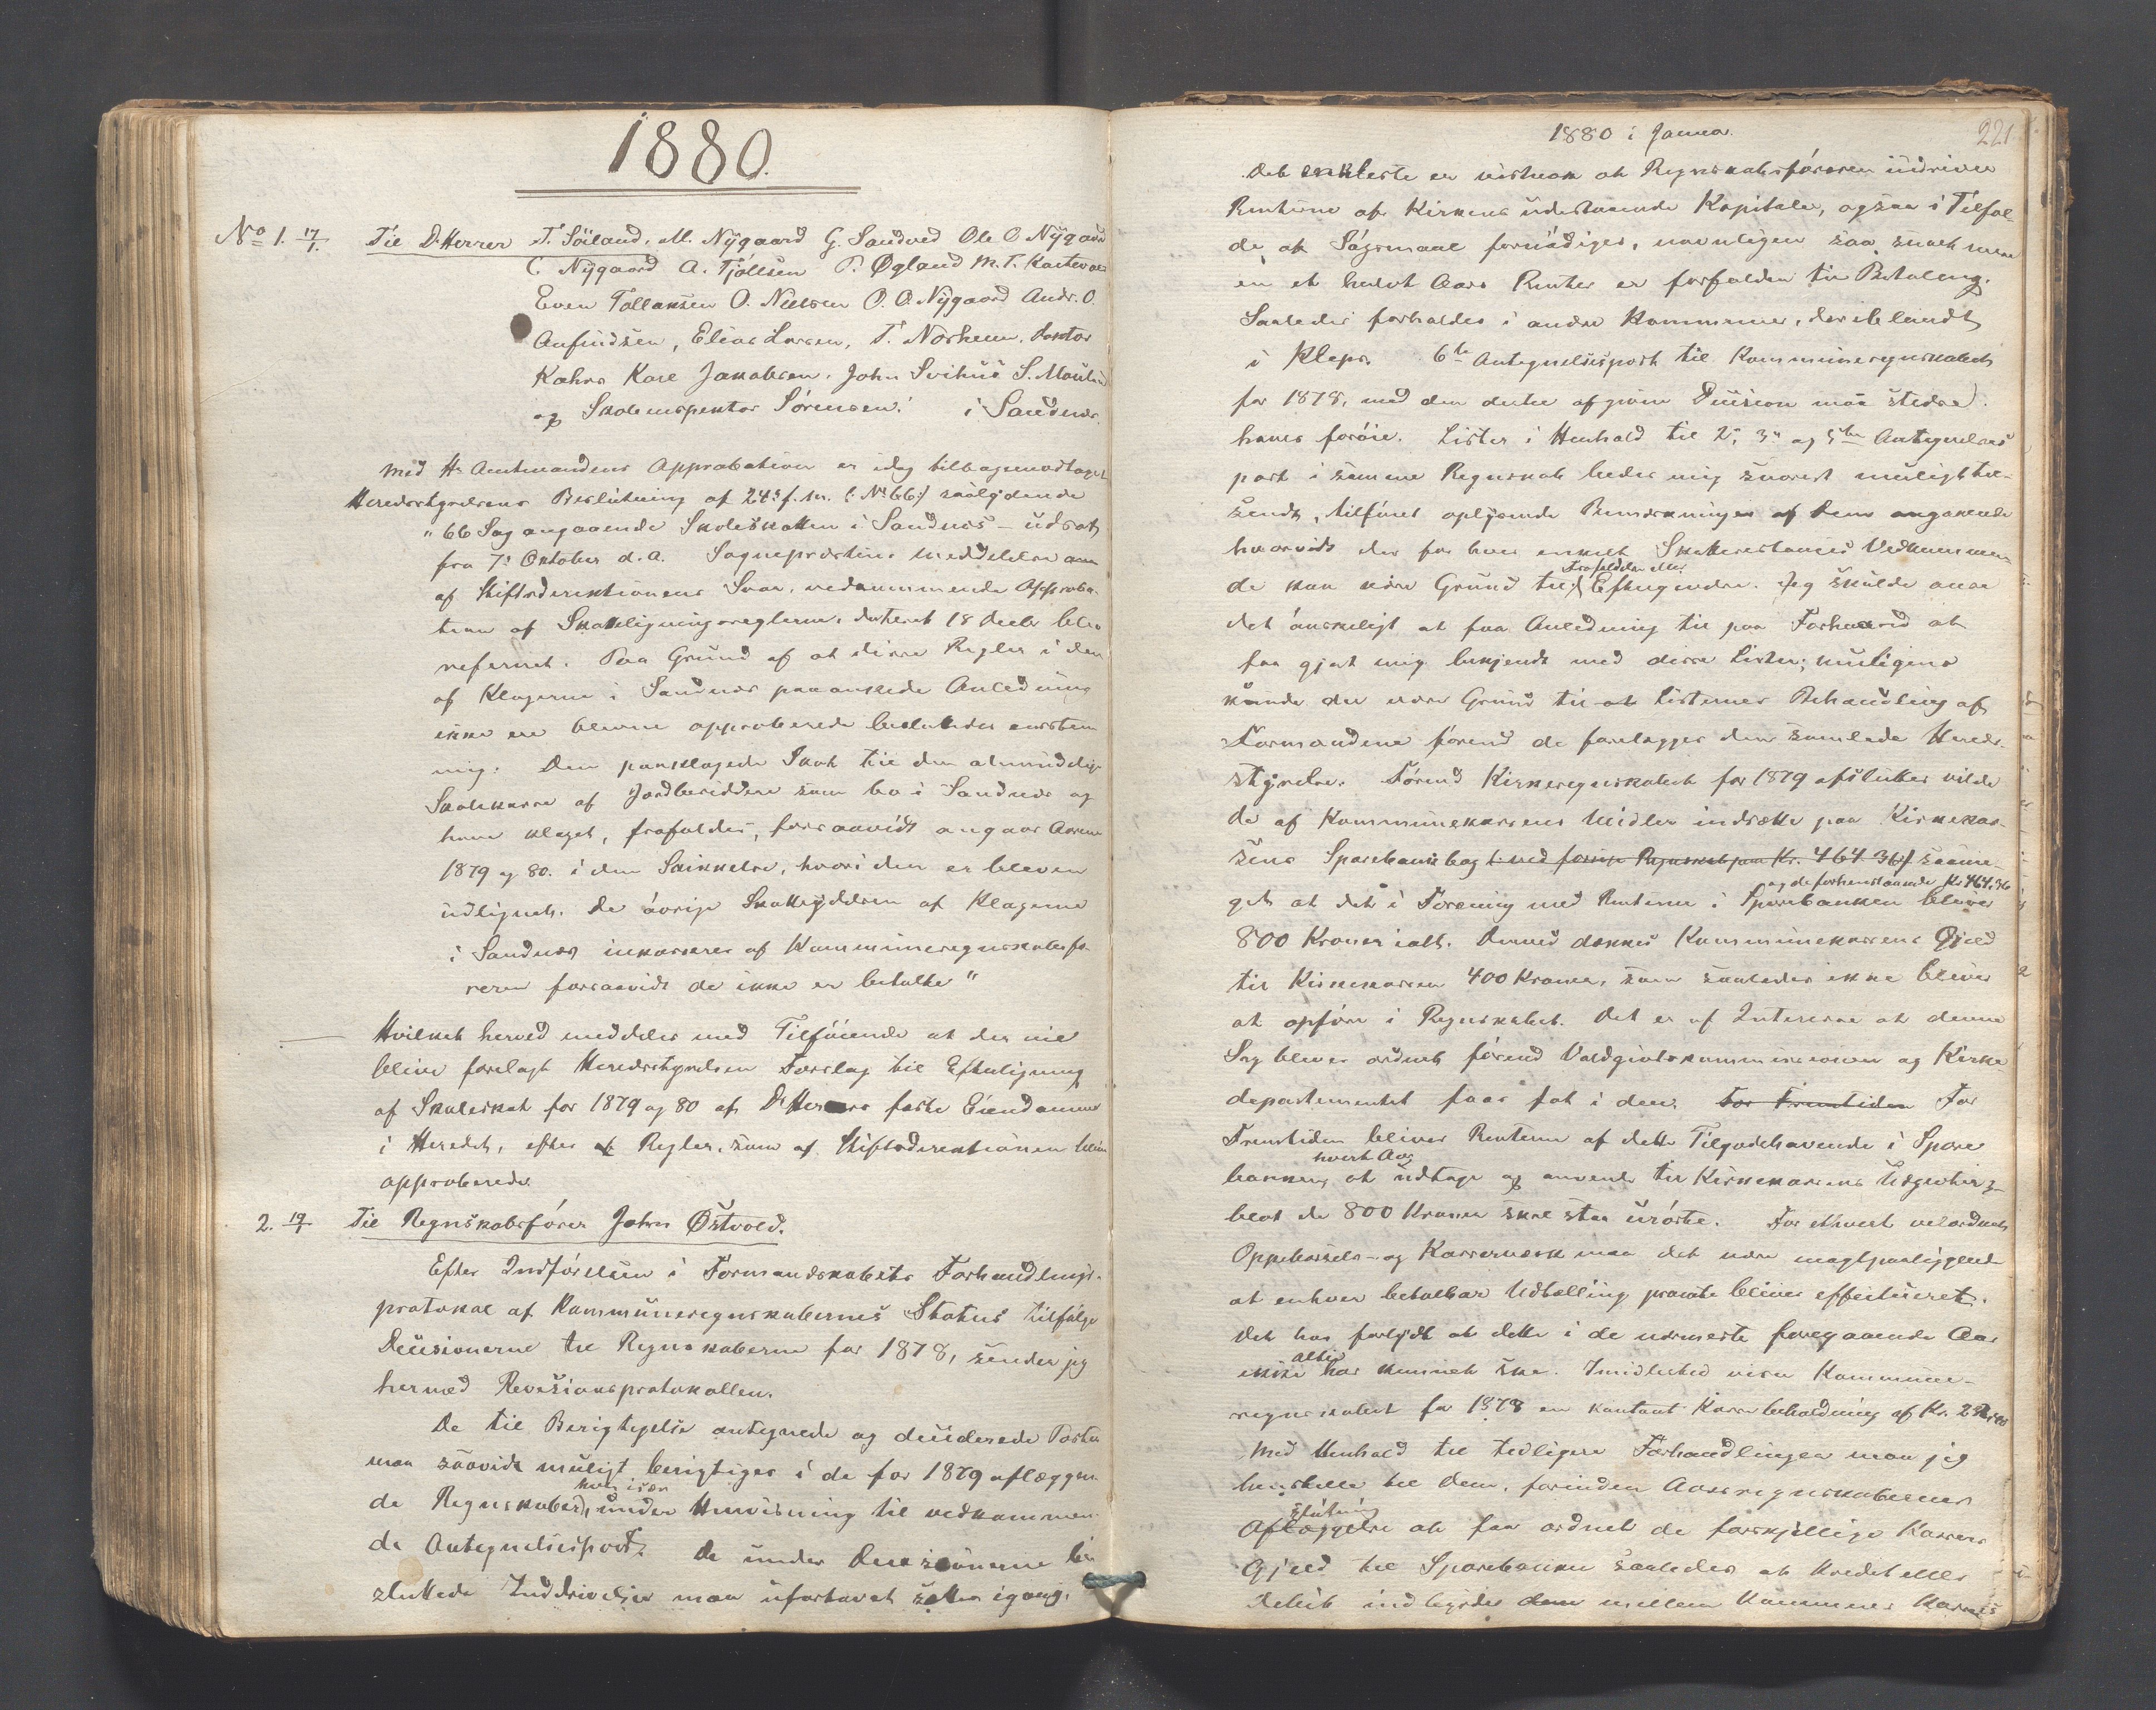 1880.
No 1. 17/1. Til DHerrer T. Söiland, M. Nÿgaard G. Sandved Ole O Nÿgaard
C. Nÿgaard A. Tjöllsen P. Øgland M. T.
Even Tollaksen O. Nielsen O. O. Nÿgaard Andr. O.
Anfindsen, Elias Larsen, T. Norheim, Doktor
Kahrs Karl Jakobsen, John Svihus S. Mauland
og Skoleinspektør Sörensen. i Sandnæs.
Med Hr Amtmandens Approbation er idag tilbagemodtaget
Heredsstyrelsens Beslutning af 24de f. M. (: No 66:) saalydende
"66 Sag angaaende Skoleskatten i Sandnes – udsat
fra 7de Oktober d. A. Sogneprestens Meddelelse om
af Stiftsdirektionens Svar, vedkommende Approba-
tion af Skatteligningsreglerne, dateret 18 Decbr blev
refereret. Paa Grund af at disse Regler i den
af Klagerne i Sandnæs paaankede Anledning
ikke ere blevne approberede besluttedes enstem-
mig: Den paaklagede Skat til den almindelige
Skolekasse af Jordbesiddere som bo i Sandnæs og
have klaget, frafaldes, forsaavidt angaar Aarene
1879 og 80. i den Skikkelse, hvori den er bleven
udlignet. De övrige Skatteydelser af Klagerne
i Sandnæs inkasseres af Kommuneregnskabsfö-
reren forsaavidt de ikke er betalte"
Hvilket herved meddeles med Tilföiende at der vil
blive forelagt Heredsstyrelsen Forslag til Efterligning
af Skoleskat for 1879 og 80 af DHerrers faste Eiendomme
i Heredet, efter Regler, som af Stiftsdirektionen blive
approberede.
2. 19/1 Til Regnskabsförer John Østvold.
Efter Indförelsen i Formandskabets Forhandlings-
protokol af Kommuneregnskabernes Status tilfölge
Decisionerne til Regnskaberne for 1878, sender jeg
hermed Revisionsprotokollen.
De til Berigtigelse antegnede og deciderede Poster
maa saavidt muligt berigtiges i de for 1879 aflæggen-
hver især
de Regnskaber, under Henvisning til vedkommen-
de Antegnelsespost. De under Decisionerne be-
sluttede Inddrivelser maa ufortövet sættes igang.
1880 i Januar. 221
Det enkleste er vistnok at Regnskabsföreren inddriver
Renterne af Kirkens udestaaende Kapitaler, ogsaa i Tilfæl-
de, at Sögsmaal fornödiges, navnligen saa snart mere
en et halvt Aars Renter er forfalden til Betaling.
Saaledes forholdes i andre Kommuner, deriblandt
i Klep. 6te Antegnelsespost til Kommuneregnskabet
for 1878, med den dertil afgivne Decision maa stedse
haves foröie. Lister i Henhold til 2den, 3die og 5te Antegnelses
post i samme Regnskab bedes mig snarest muligt til-
sendt, tilföiet oplysende Bemærkninger af Dem angaaende
hvorvidt der for hver enkelt Skatterestances Vedkommen-
Frafaldelse eller
de kan være Grund til Eftergivelse. Jeg skulde anse
det önskeligt at faa Anledning til paa Forhaand at
faa gjort mig bekjendt med disse Lister; muligens
kunde der være Grund til at Listernes Behandling af
Formændene förend de forelægges den samlede Hereds-
styrelse. Förend Kirkeregnskabet for 1879 afsluttes vilde
De af Kommunekassens Midler indsætte paa Kirkekas-
sens Sparebankbog (: ved forrige Regnskab paa Kr. 464.36 :) saame-
og de forhenstaaende Kr 464,36
get at det i Forening med Renterne i Sparebanken bliver
800 Kroner ialt. Dermed dækkes Kommunekassens Gjæld
til Kirkekassen 400 Kroner, som saaledes ikke bliver
at opföre i Regnskabet. Det er af Interesse at denne
Sag bliver ordnet förend Voldgiftskommissionen og Kirke
departementet faar fat i den. For Fremtiden For
Fremtiden bliver Renterne af dette Tilgodehavende i Spare
hvert Aar
banken at udtage og anvende til Kirkekassens Udgifter –
blot de 800 Kroner skal staa urörte. For ethvert velordnet
Oppebørsels- og Kassevæsen maa det være magtpaaliggende
at enhver betalbar Udtælling præcist bliver effectueret.
Det har forlydt at dette i de nærmeste foregaaende Aar
altid
ikke har kunnet ske. Imidlertid viser Kommune-
regnskabet for 1878 en kontant Kassebeholdning af Kr.
Med Henhold til tidligere Forhandlinger maa jeg
henstille til Dem, forinden Aarsregnskabernes
Slutning
Aflæggelse at faa ordnet de forskjellige Kassers
Gjæld til Sparebanken saaledes at Kredit eller
Debit indbyrdes mellem Kommunes Kasser